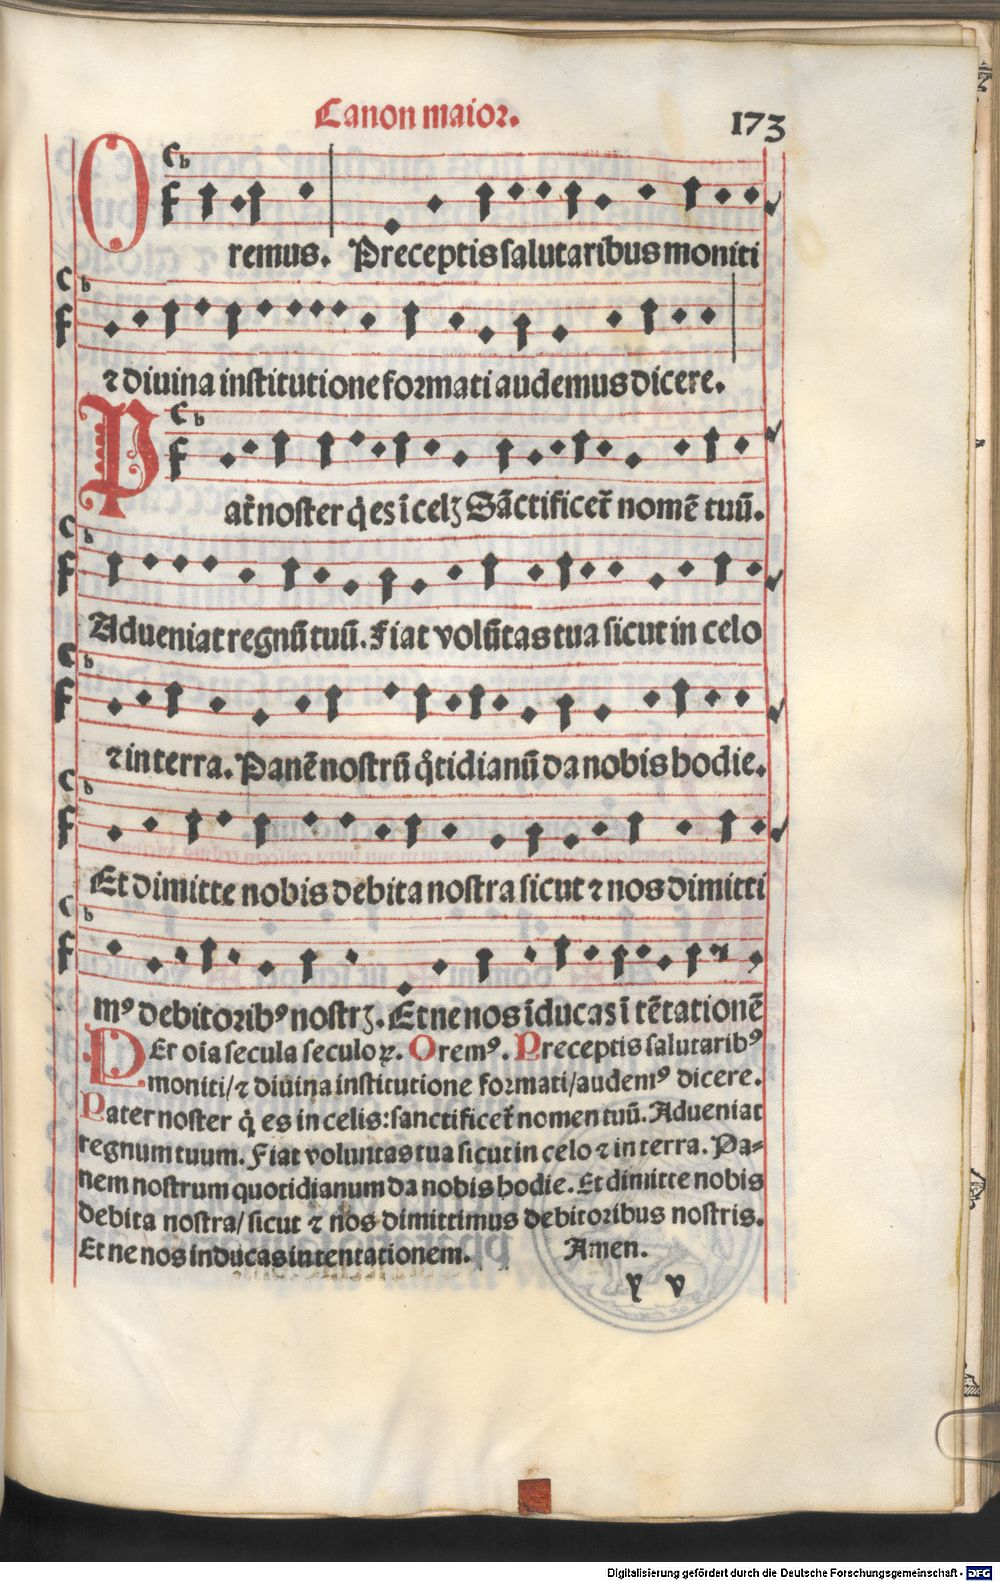 Canon maior.
173
Oremus. Preceptis salutaribus moniti
⁊ diuina institutione formati audemus dicere.
Pat̃ noster q̇ es ĩ celꝫ Sãctificet̃ nomẽ tuũ.
Adueniat regnũ tuũ. Fiat volũtas tua sicut in celo
⁊ in terra. Panẽ nostrũ q̇tidianũ da nobis hodie.
Et dimitte nobis debita nostra sicut ⁊ nos dimitti
mꝰ debitoribꝰ nostrꝫ. Et ne nos ĩducas ĩ tẽtationẽ
PEr oĩa secula seculoꝝ. Oremꝰ. Preceptis salutaribꝰ
moniti/⁊ diuina institutione formati/audemꝰ dicere.
Pater noster q̇ es in celis:sanctificet̃ nomen tuũ. Adueniat
regnum tuum. Fiat voluntas tua sicut in celo ⁊ in terra. Pa-
nem nostrum quotidianum da nobis hodie. Et dimitte nobis
debita nostra/sicut ⁊ nos dimittimus debitoribus nostris.
Et ne nos inducas in tentationem. Amen.
y v
Digitalisierung gefördert durch die Deutsche Forschungsgemeinschaft - DFG